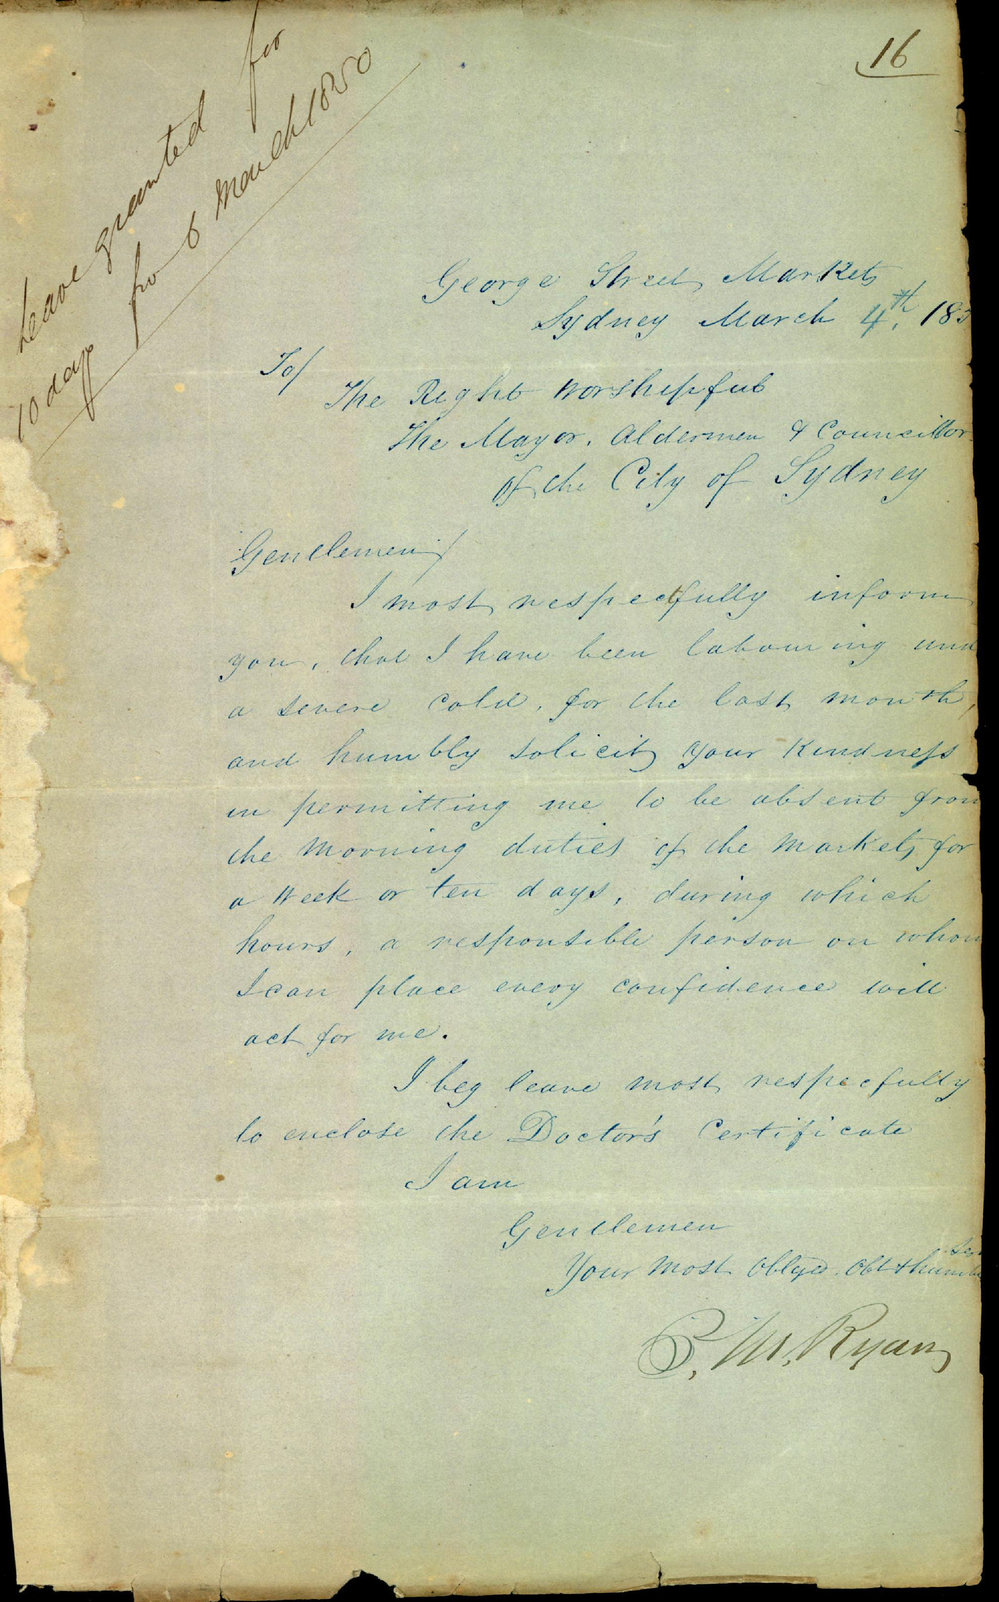 16
Leave granted for
10 days fro 6 March 1850
George Street Markets
Sydney March 4th, 185
To/
The Right Worshipful
The Mayor, Aldermen & Councillor
of the City of Sydney
Gentlemen/
I most respectfully inform
you, that I have been labouring und
a severe cold, for the last month,
and humbly solicit your kindness
in permitting me to be absent from
the morning duties of the Markets for
a Week or ten days, during which
hours, a responsible person on whom
I can place every confidence will
act for me.
I beg leave most respecfully
to enclose the Doctor's Certificate
I am
Gentlemen
Your most Oblged. Obt & humble
Ser
M. Ryan